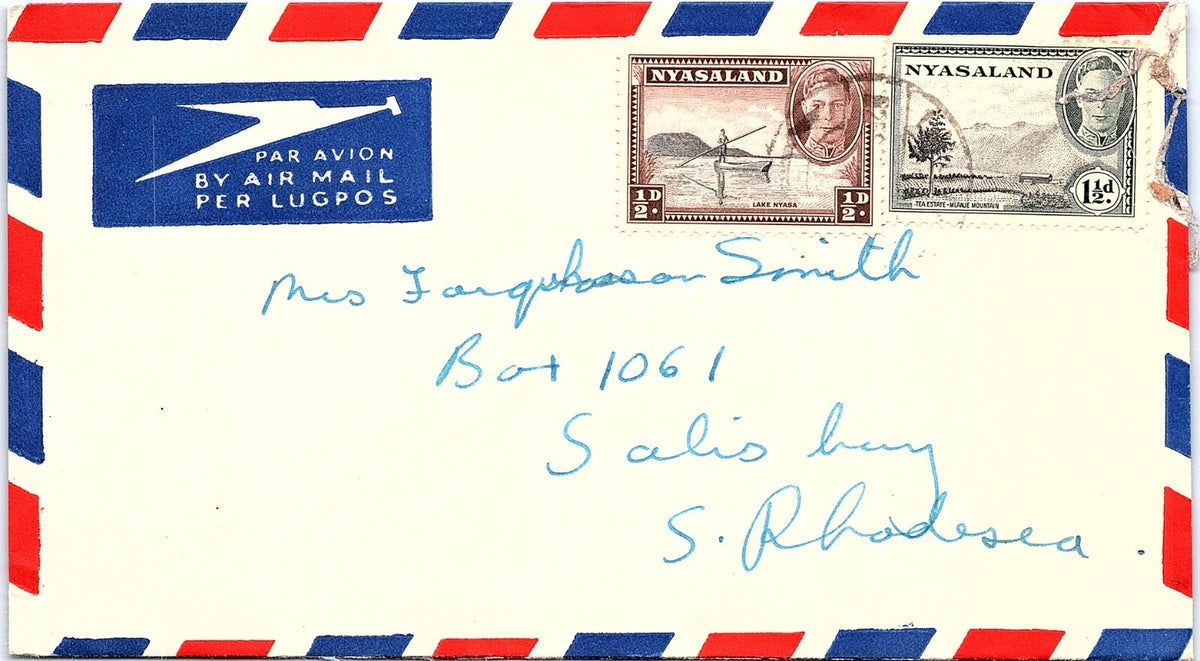 PAR AVION
BY AIR MAIL
PER LUGPOS
NYASALAND
½D.
LAKE NYASA
½D.
NYASALAND
TEA ESTATE - MLANJE MOUNTAIN
1½d.
Mrs Farquharson Smith
Box 1061
Salisbury
S. Rhodesea.